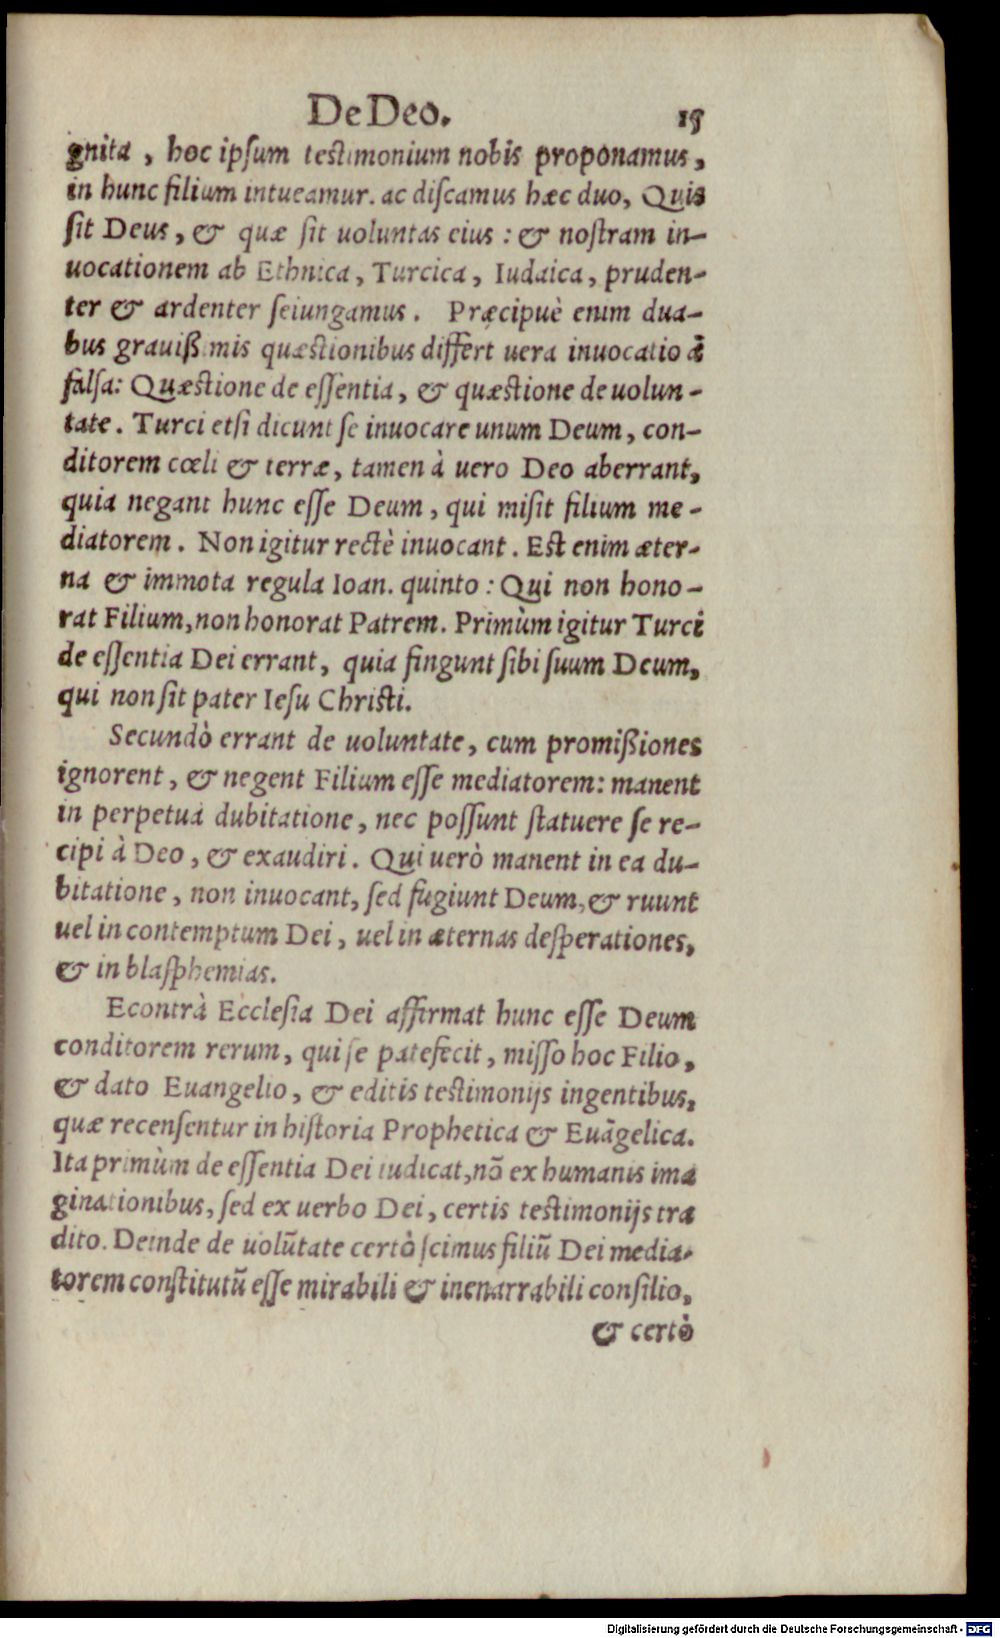 De Deo. 15
gnita , hoc ipſum testimonium nobis proponamus,
in hunc filium intueamur. ac diſcamus hæc duo, Quis
ſit Deus, & quæ ſit uoluntas eius : & noſtram in-
uocationem ab Ethnica, Turcica, Iudaica, pruden-
ter & ardenter ſeiungamus. Præcipuè enim dua-
bus grauiſsimis quæstionibus differt uera inuocatio à
falſa: Quæstione de eſſentia, & quæstione de uolun-
tate. Turci etſi dicunt ſe inuocare unum Deum, con-
ditorem cœli & terræ, tamen à uero Deo aberrant,
quia negant hunc eſſe Deum, qui miſit filium me-
diatorem. Non igitur rectè inuocant. Est enim æter-
na & immota regula Ioan. quinto : Qui non hono-
rat Filium, non honorat Patrem. Primùm igitur Turci
de eſſentia Dei errant, quia fingunt ſibi ſuum Deum,
qui non ſit pater Ieſu Christi.
Secundò errant de uoluntate, cum promißiones
ignorent, & negent Filium eſſe mediatorem: manent
in perpetua dubitatione, nec poſſunt ſtatuere ſe re-
cipi à Deo, & exaudiri. Qui uerò manent in ea du-
bitatione, non inuocant, ſed fugiunt Deum, & ruunt
uel in contemptum Dei, uel in æternas deſperationes,
& in blaſphemias.
Econtrà Eccleſia Dei affirmat hunc eſſe Deum
conditorem rerum, qui ſe patefecit, miſſo hoc Filio,
& dato Euangelio, & editis testimonijs ingentibus,
quæ recenſentur in hiſtoria Prophetica & Euãgelica.
Ita primùm de eſſentia Dei iudicat, nõ ex humanis ima
ginationibus, ſed ex uerbo Dei, certis testimonijs tra
dito. Deinde de uolũtate certò ſcimus filiũ Dei media-
torem conſtitutũ eſſe mirabili & inenarrabili conſilio,
& certò
Digitalisierung gefördert durch die Deutsche Forschungsgemeinschaft - DFG